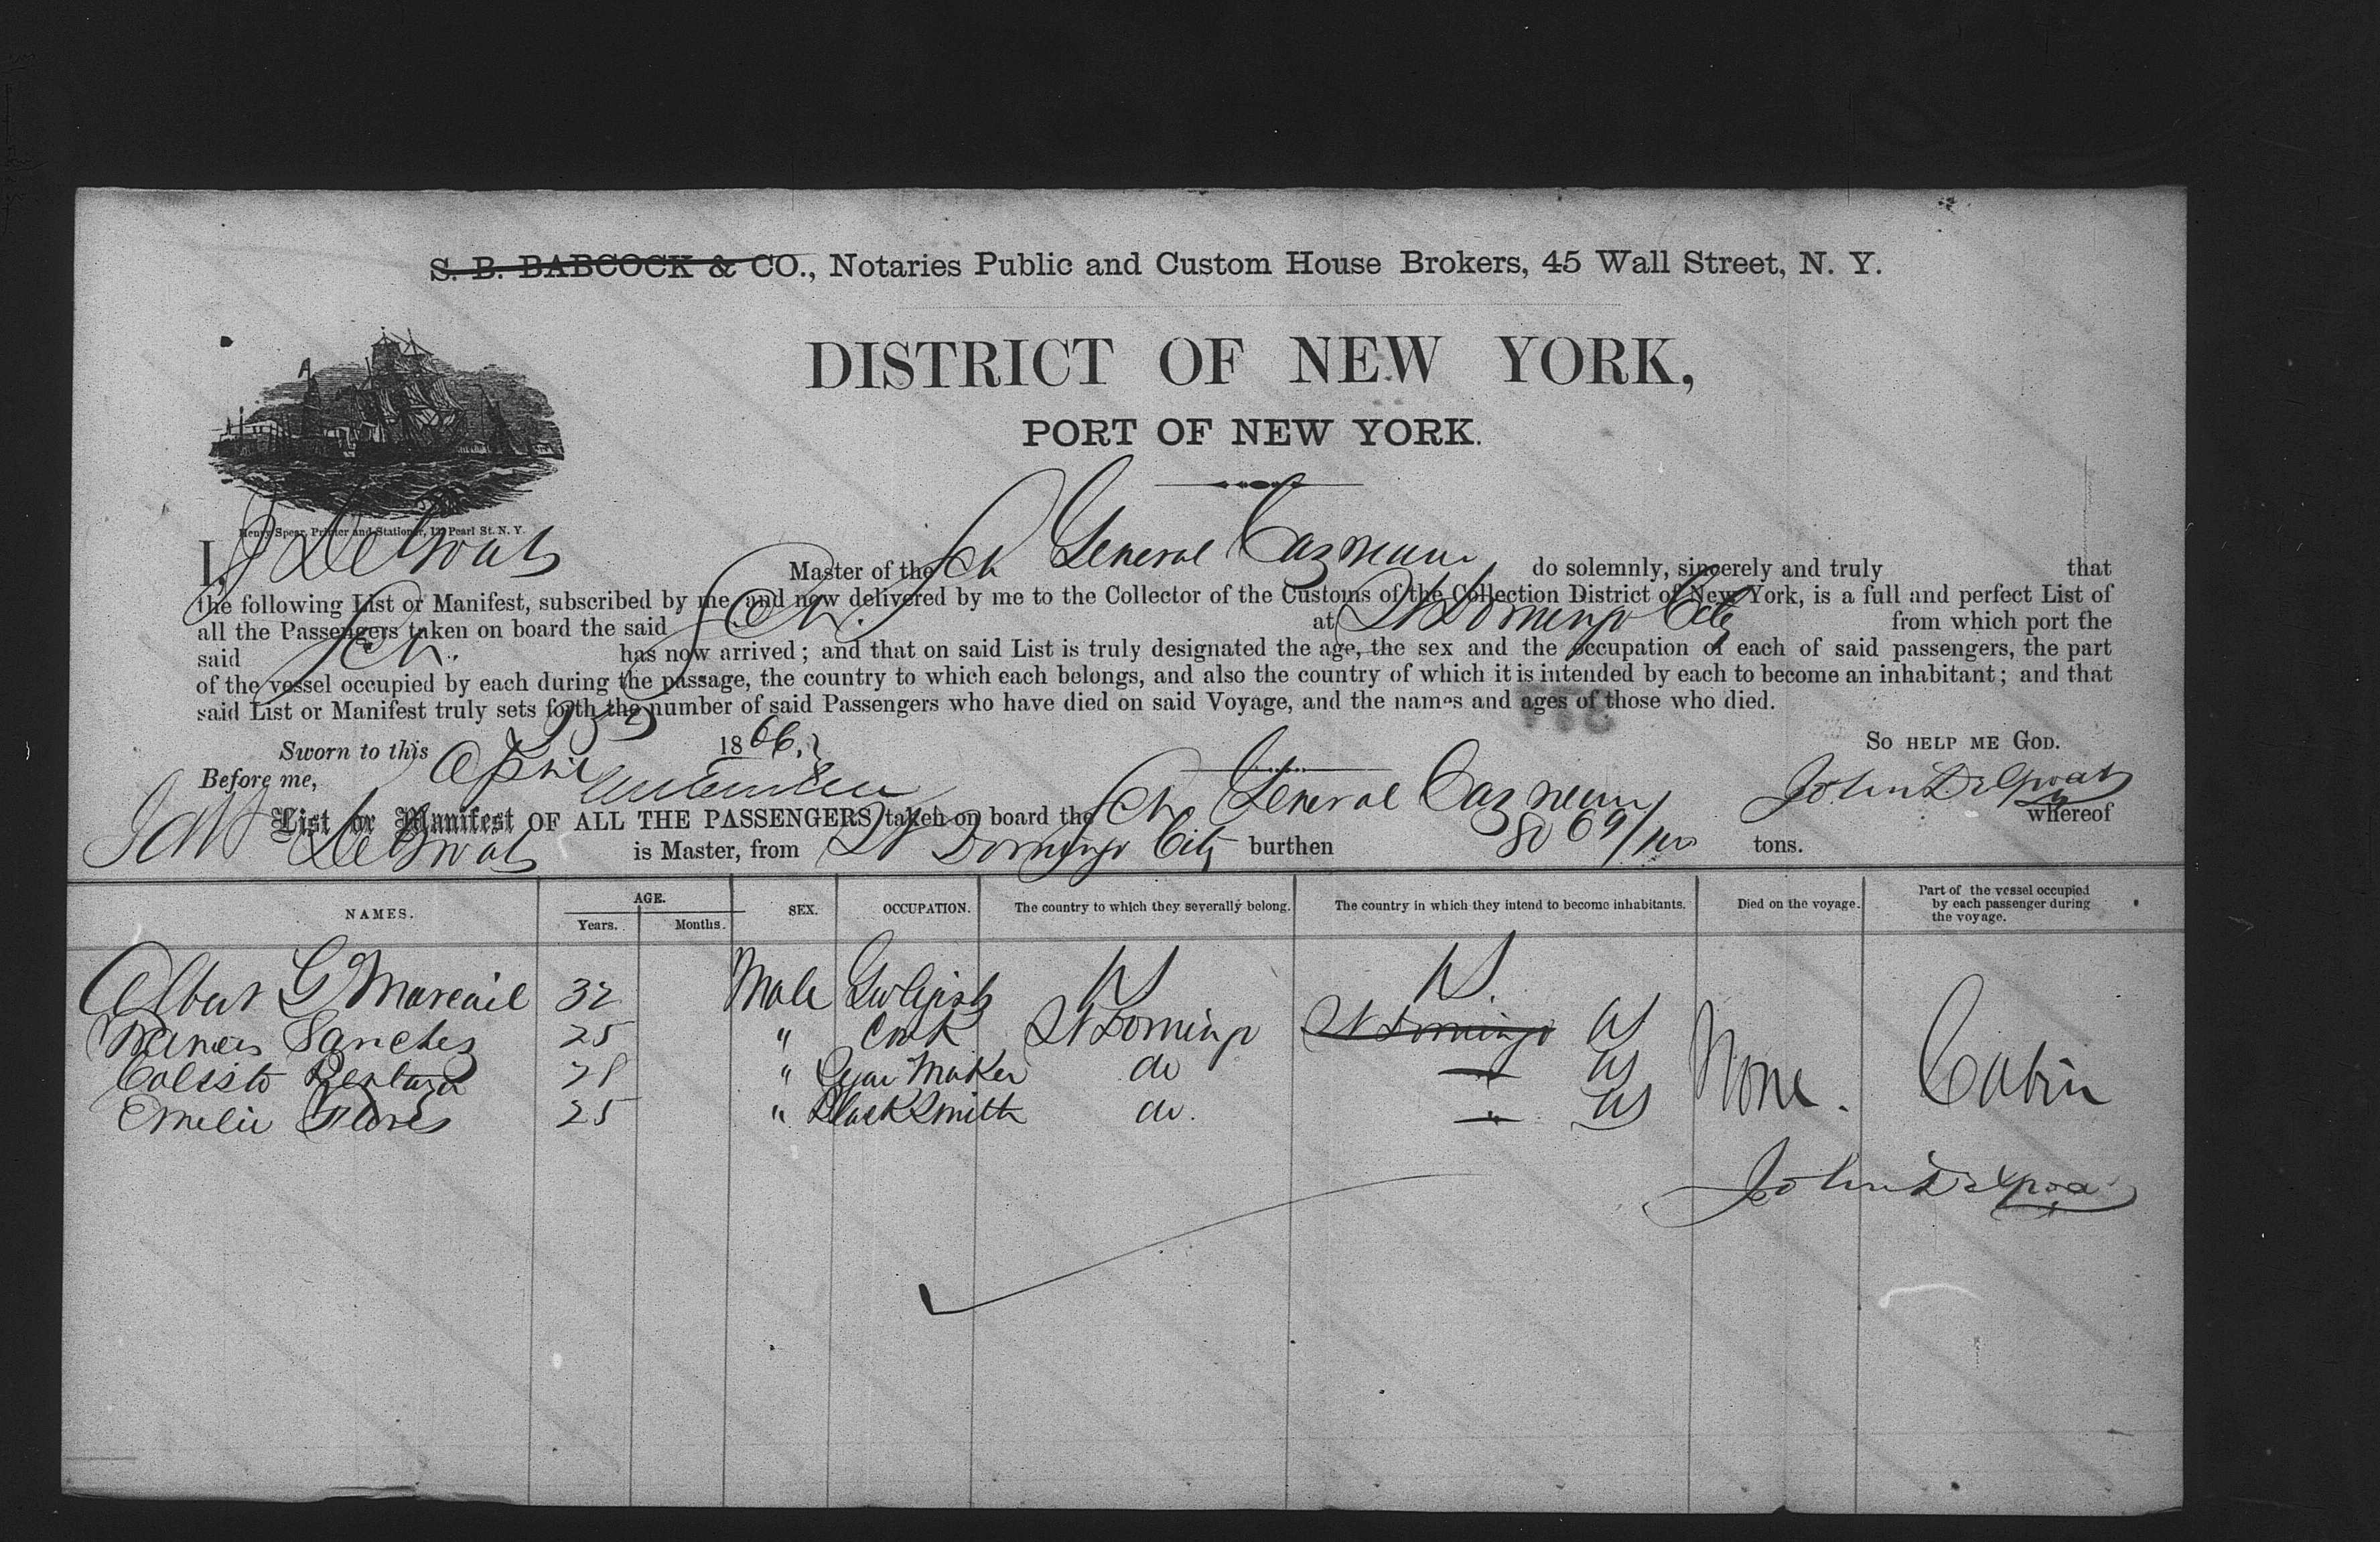 S. B. BABCOCK & CO., Notaries Public and Custom House Brokers, 45 Wall Street, N. Y.
DISTRICT OF NEW YORK,
PORT OF NEW YORK.
Henry Spear, Printer and Stationer, 132 Pearl St. N. Y.
I, J Master of the Sch General Cazneau do solemnly, sincerely and truly that
the following List or Manifest, subscribed by me, and now delivered by me to the Collector of the Customs of the Collection District of New York, is a full and perfect List of
all the Passengers taken on board the said Sch. at St Domingo City from which port the
said Sch. has now arrived; and that on said List is truly designated the age, the sex and the occupation of each of said passengers, the part
of the vessel occupied by each during the passage, the country to which each belongs, and also the country of which it is intended by each to become an inhabitant; and that
said List or Manifest truly sets forth the number of said Passengers who have died on said Voyage, and the names and ages of those who died.
Sworn to this April 1866. SO HELP ME GOD.
Before me, John
List or Manifest OF ALL THE PASSENGERS taken on board the Sch General Cazneau whereof
is Master, from St Domingo City burthen 80 69/100 tons.
NAMES. AGE. Years. Months. SEX. OCCUPATION. The country to which they severally belong. The country in which they intend to become inhabitants. Died on the voyage. Part of the vessel occupied by each passenger during the voyage.
Albert G 32 Male US US.
Sanches 25 " Cook St Domingo St Domingo US
Calisto 28 " Segar Maker do " US None. Cabin
Emelie Flores 25 " Black Smith do. " US
John